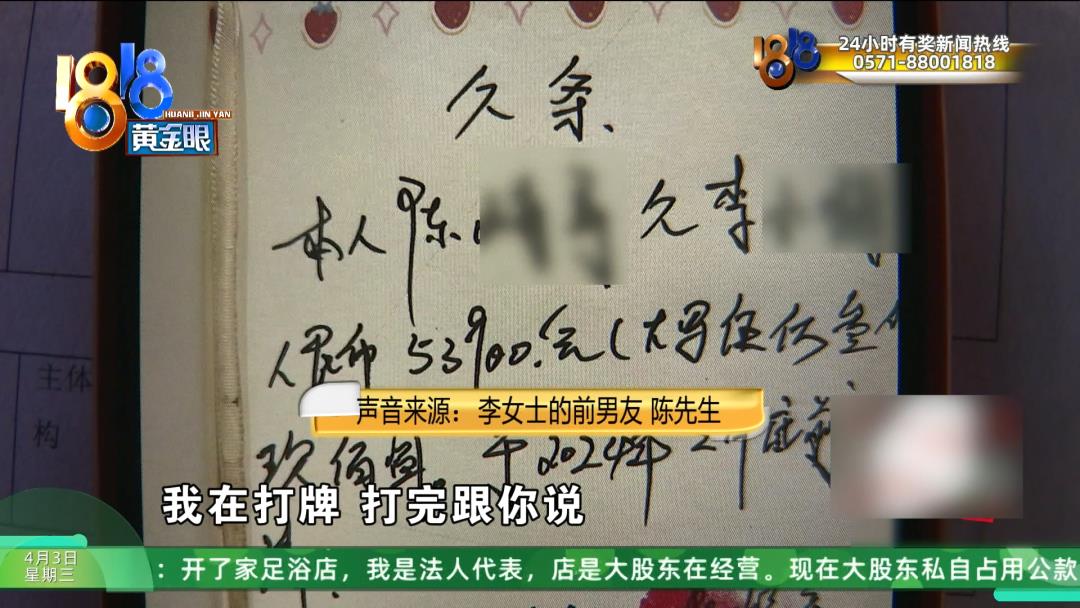 1818
HUANG JIN YAN
黄金眼
1818
24小时有奖新闻热线
0571-88001818
欠条
本人陈 欠李
人民币53900.元(大写伍仟叁
玖佰圆。于2024年
主体
构
声音来源：李女士的前男友 陈先生
我在打牌 打完跟你说
4月3日
星期三
：开了家足浴店，我是法人代表，店是大股东在经营。现在大股东私自占用公款